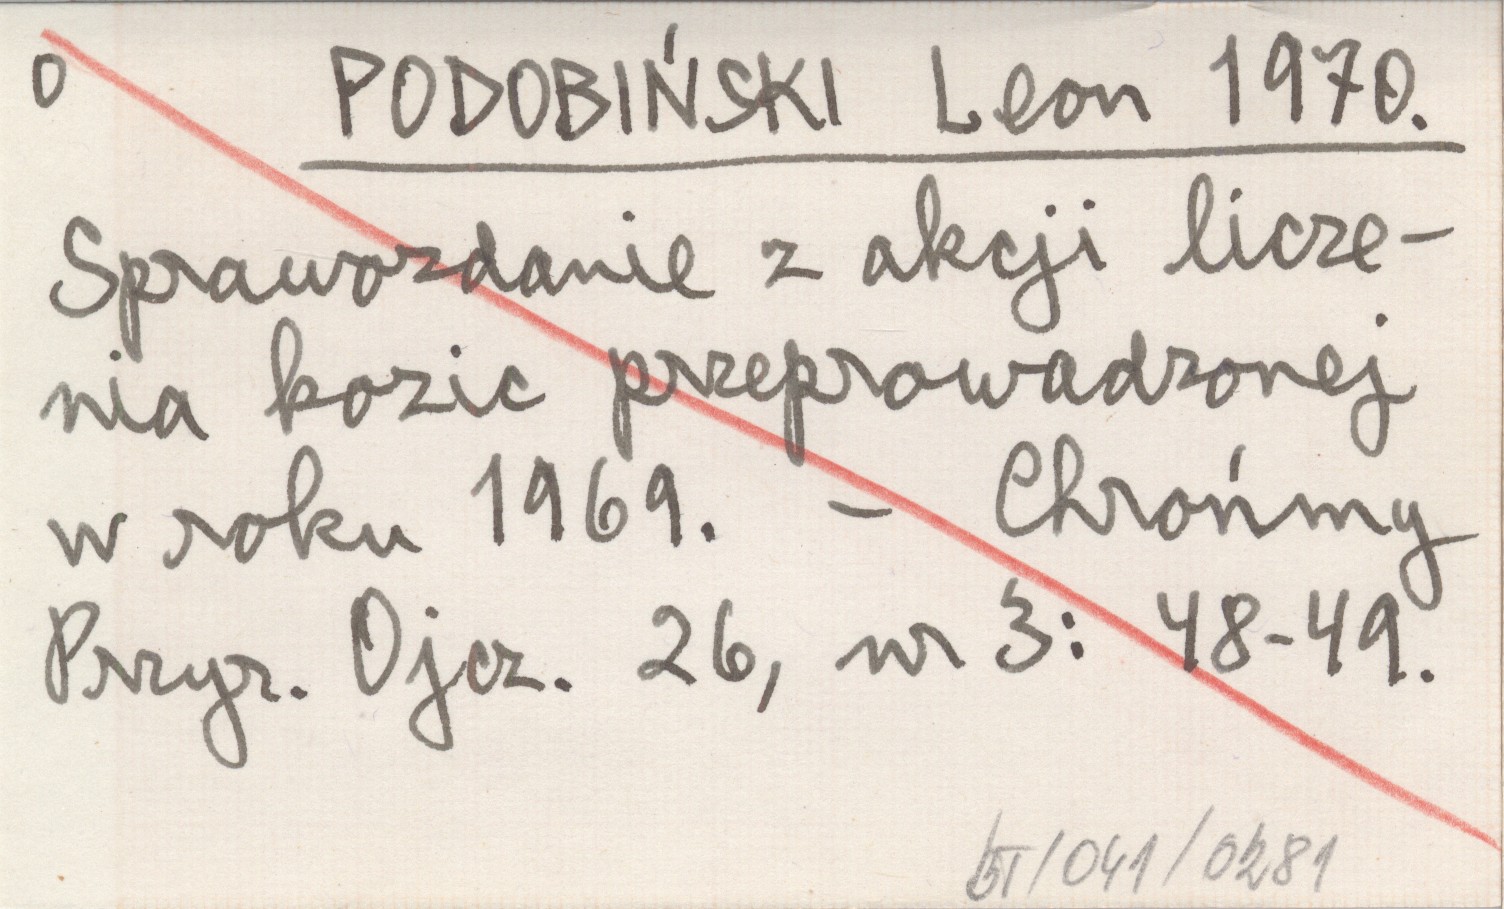 O PODOBIŃSKI Leon 1970.
Sprawozdanie z akcji licze-
nia kozic przeprowadzonej
w roku 1969. – Chrońmy
Przyr. Ojcz. 26, nr 3: 48-49.
/041/0281